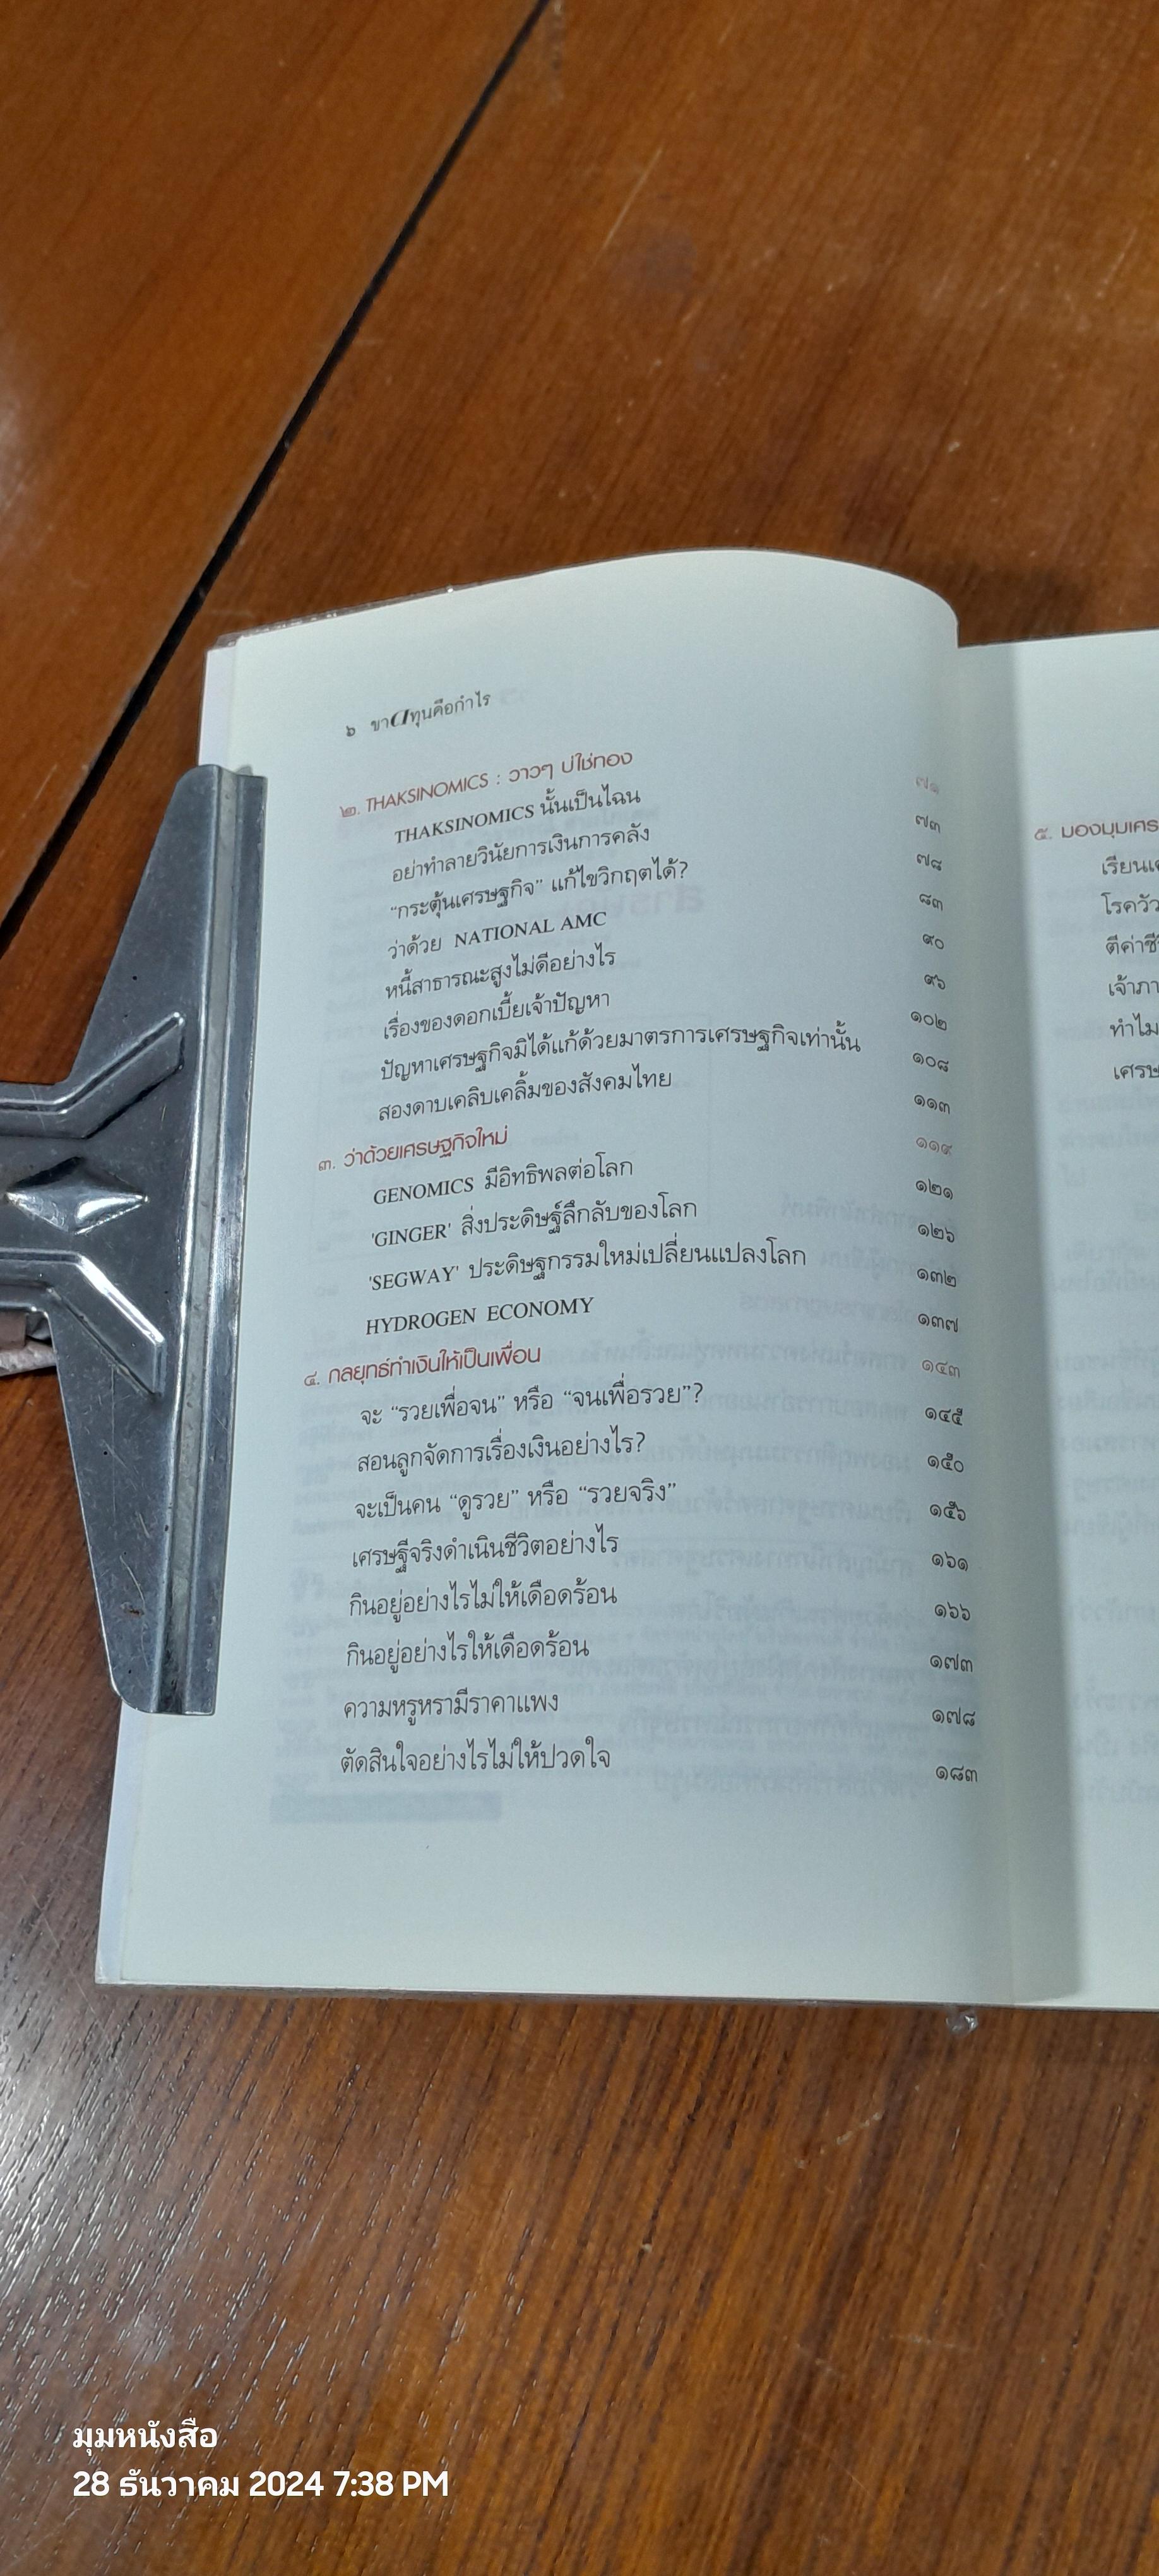 ๖ ขาดทุนคือกำไร
๒. THAKSINOMICS : วาวๆ บ่ใช่ทอง ๗๑
THAKSINOMICS นั้นเป็นไฉน ๗๓
อย่าทำลายวินัยการเงินการคลัง ๗๘
“กระตุ้นเศรษฐกิจ” แก้ไขวิกฤตได้? ๘๓
ว่าด้วย NATIONAL AMC ๙๐
หนี้สาธารณะสูงไม่ดีอย่างไร ๙๖
เรื่องของดอกเบี้ยเจ้าปัญหา ๑๐๒
ปัญหาเศรษฐกิจมิได้แก้ด้วยมาตรการเศรษฐกิจเท่านั้น ๑๐๘
สองดาบเคลิบเคลิ้มของสังคมไทย ๑๑๓
๓. ว่าด้วยเศรษฐกิจใหม่ ๑๑๙
GENOMICS มีอิทธิพลต่อโลก ๑๒๑
'GINGER' สิ่งประดิษฐ์ลึกลับของโลก ๑๒๖
'SEGWAY' ประดิษฐกรรมใหม่เปลี่ยนแปลงโลก ๑๓๒
HYDROGEN ECONOMY ๑๓๗
๔. กลยุทธ์ทำเงินให้เป็นเพื่อน ๑๔๓
จะ “รวยเพื่อจน” หรือ “จนเพื่อรวย”? ๑๔๕
สอนลูกจัดการเรื่องเงินอย่างไร? ๑๕๐
จะเป็นคน “ดูรวย” หรือ “รวยจริง” ๑๕๖
เศรษฐีจริงดำเนินชีวิตอย่างไร ๑๖๑
กินอยู่อย่างไรไม่ให้เดือดร้อน ๑๖๖
กินอยู่อย่างไรให้เดือดร้อน ๑๗๓
ความหรูหรามีราคาแพง ๑๗๘
ตัดสินใจอย่างไรไม่ให้ปวดใจ ๑๘๓
๕. มองมุมเศร
เรียนเ
โรควัว
ตีค่าชี
เจ้าภา
ทำไม
เศรษ
มุมหนังสือ
28 ธันวาคม 2024 7:38 PM